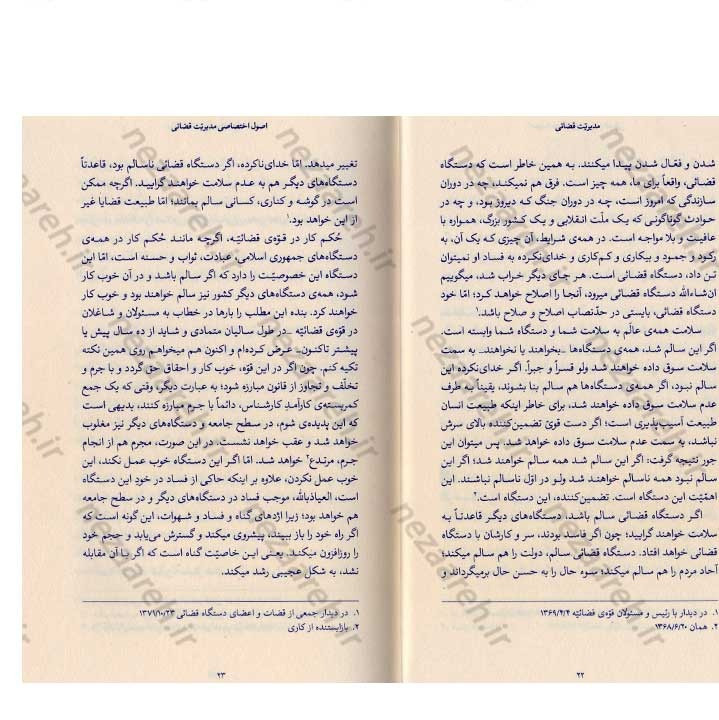 مدیریّت قضائی
شدن و فعّال شدن پیدا میکنند. به همین خاطر است که دستگاه
قضائی، واقعاً برای ما، همه چیز است. فرق هم نمیکند، چه در دوران
سازندگی که امروز است، چه در دوران جنگ که دیروز بود، و چه در
حوادث گوناگونی که یک ملّت انقلابی و یک کشور بزرگ، همواره با
عافیت و بلا مواجه است. در همه‌ی شرایط، آن چیزی که یک آن، به
رکود و جمود و بیکاری و کم‌کاری و خدای‌نکرده به فساد او نمیتوان
تن داد، دستگاه قضائی است. هر جای دیگر خراب شد، میگوییم
ان‌شاءالله دستگاه قضائی میرود، آنجا را اصلاح خواهد کرد؛ امّا خود
دستگاه قضائی، بایستی در حدّنصاب اصلاح و صلاح باشد.۱
سلامت همه‌ی عالَم به سلامت شما و دستگاه شما وابسته است.
اگر این سالم شد، همه‌ی دستگاه‌ها ـ بخواهند یا نخواهند ـ به سمت
سلامت سوق داده خواهند شد ولو قسراً و جبراً. اگر خدای‌نکرده این
سالم نبود، اگر همه‌ی دستگاه‌ها هم سالم بنا بشوند، یقیناً به طرف
عدم سلامت سوق داده خواهند شد، برای خاطر اینکه طبیعت انسان
طبیعت آسیب‌پذیری است؛ اگر دست قویّ تضمین‌کننده بالای سرش
نباشد، به سمت عدم سلامت سوق داده خواهد شد. پس میتوان این
جور نتیجه گرفت: اگر این سالم شد همه سالم خواهند شد؛ اگر این
سالم نبود همه ناسالم خواهند شد ولو در اوّل ناسالم نباشند. این
اهمّیّت این دستگاه است. تضمین‌کننده، این دستگاه است.۲
اگر دستگاه قضائی سالم باشد، دستگاه‌های دیگر قاعدتاً به
سلامت خواهند گرایید؛ چون اگر فاسد بودند، سر و کارشان با دستگاه
قضائی خواهد افتاد. دستگاه قضائی سالم، دولت را هم سالم میکند؛
آحاد مردم را هم سالم میکند؛ سوء حال را به حسن حال برمیگرداند و
۱. در دیدار با رئیس و مسئولان قوّه‌ی قضائیّه ۱۳۶۹/۴/۴
۲. همان ۱۳۶۸/۶/۲۰
۲۲
اصول اختصاصی مدیریّت قضائی
تغییر میدهد. امّا خدای‌ناکرده، اگر دستگاه قضائی ناسالم بود، قاعدتاً
دستگاه‌های دیگر هم به عدم سلامت خواهند گرایید. اگرچه ممکن
است در گوشه و کناری، کسانی سالم بمانند؛ امّا طبیعت قضایا غیر
از این خواهد بود.۱
حُکم کار در قوّه‌ی قضائیّه، اگرچه مانند حُکم کار در همه‌ی
دستگاه‌های جمهوری اسلامی، عبادت، ثواب و حسنه است، امّا این
دستگاه این خصوصیّت را دارد که اگر سالم باشد و در آن خوب کار
شود، همه‌ی دستگاه‌های دیگر کشور نیز سالم خواهند بود و خوب کار
خواهند کرد. بنده این مطلب را بارها در خطاب به مسئولان و شاغلان
در قوّه‌ی قضائیّه ـ در طول سالیان متمادی و شاید از ده سال پیش یا
پیشتر تاکنون ـ عرض کرده‌ام و اکنون هم میخواهم روی همین نکته
تکیه کنم. چون اگر در این قوّه، خوب کار و احقاق حق گردد و با جرم و
تخلّف و تجاوز از قانون مبارزه شود؛ به عبارت دیگر، وقتی که یک جمع
کمربسته‌ی کارآمدِ کارشناس، دائماً با جرم مبارزه کنند، بدیهی است
که این پدیده‌ی شوم، در سطح جامعه و دستگاه‌های دیگر نیز مغلوب
خواهد شد و عقب خواهد نشست. در این صورت، مجرم هم از انجام
جرم، مرتدع۲ خواهد شد. امّا اگر این دستگاه خوب عمل نکند، این
خوب عمل نکردن، علاوه بر اینکه حاکی از فساد در خودِ این دستگاه
است، العیاذبالله، موجب فساد در دستگاه‌های دیگر و در سطح جامعه
هم خواهد بود؛ زیرا اژدهای گناه و فساد و شهوات، این گونه است که
اگر راه خود را باز ببیند، پیشروی میکند و گسترش می‌یابد و حجم خود
را روزافزون میکند. یعنی این خاصیّت گناه است که اگر با آن مقابله
نشد، به شکل عجیبی رشد میکند.
۱. در دیدار جمعی از قضات و اعضای دستگاه قضائی ۱۳۷۱/۱۰/۲۳
۲. بازایستنده از کاری
۲۳
nezaareh.ir